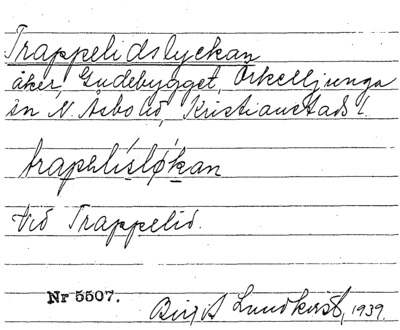 Trappelidslyckan
åker, Gudebygget, Örkelljunga
sn N. Åsbo hd, Kristianstads l.
trapəlíslø̀kan
Vid Trappelid.
Nr 5507.
Birgit Lundkvist, 1939.